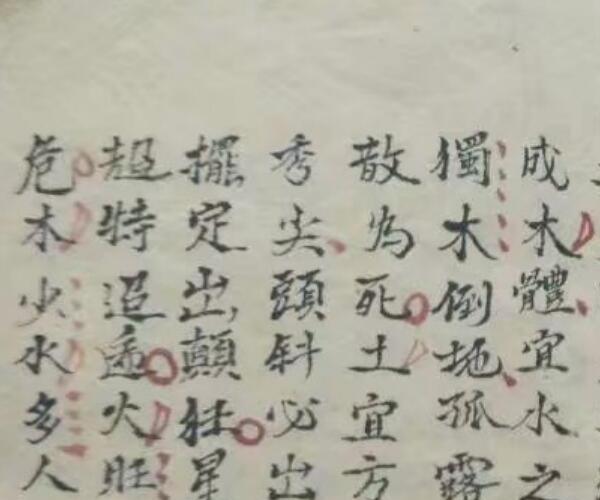 成木體宜水之
獨木倒地孤露
散為死土宜方
秀尖頭斜必出
擺定出顛狂星
超特迢遥火旺
危木少水多人